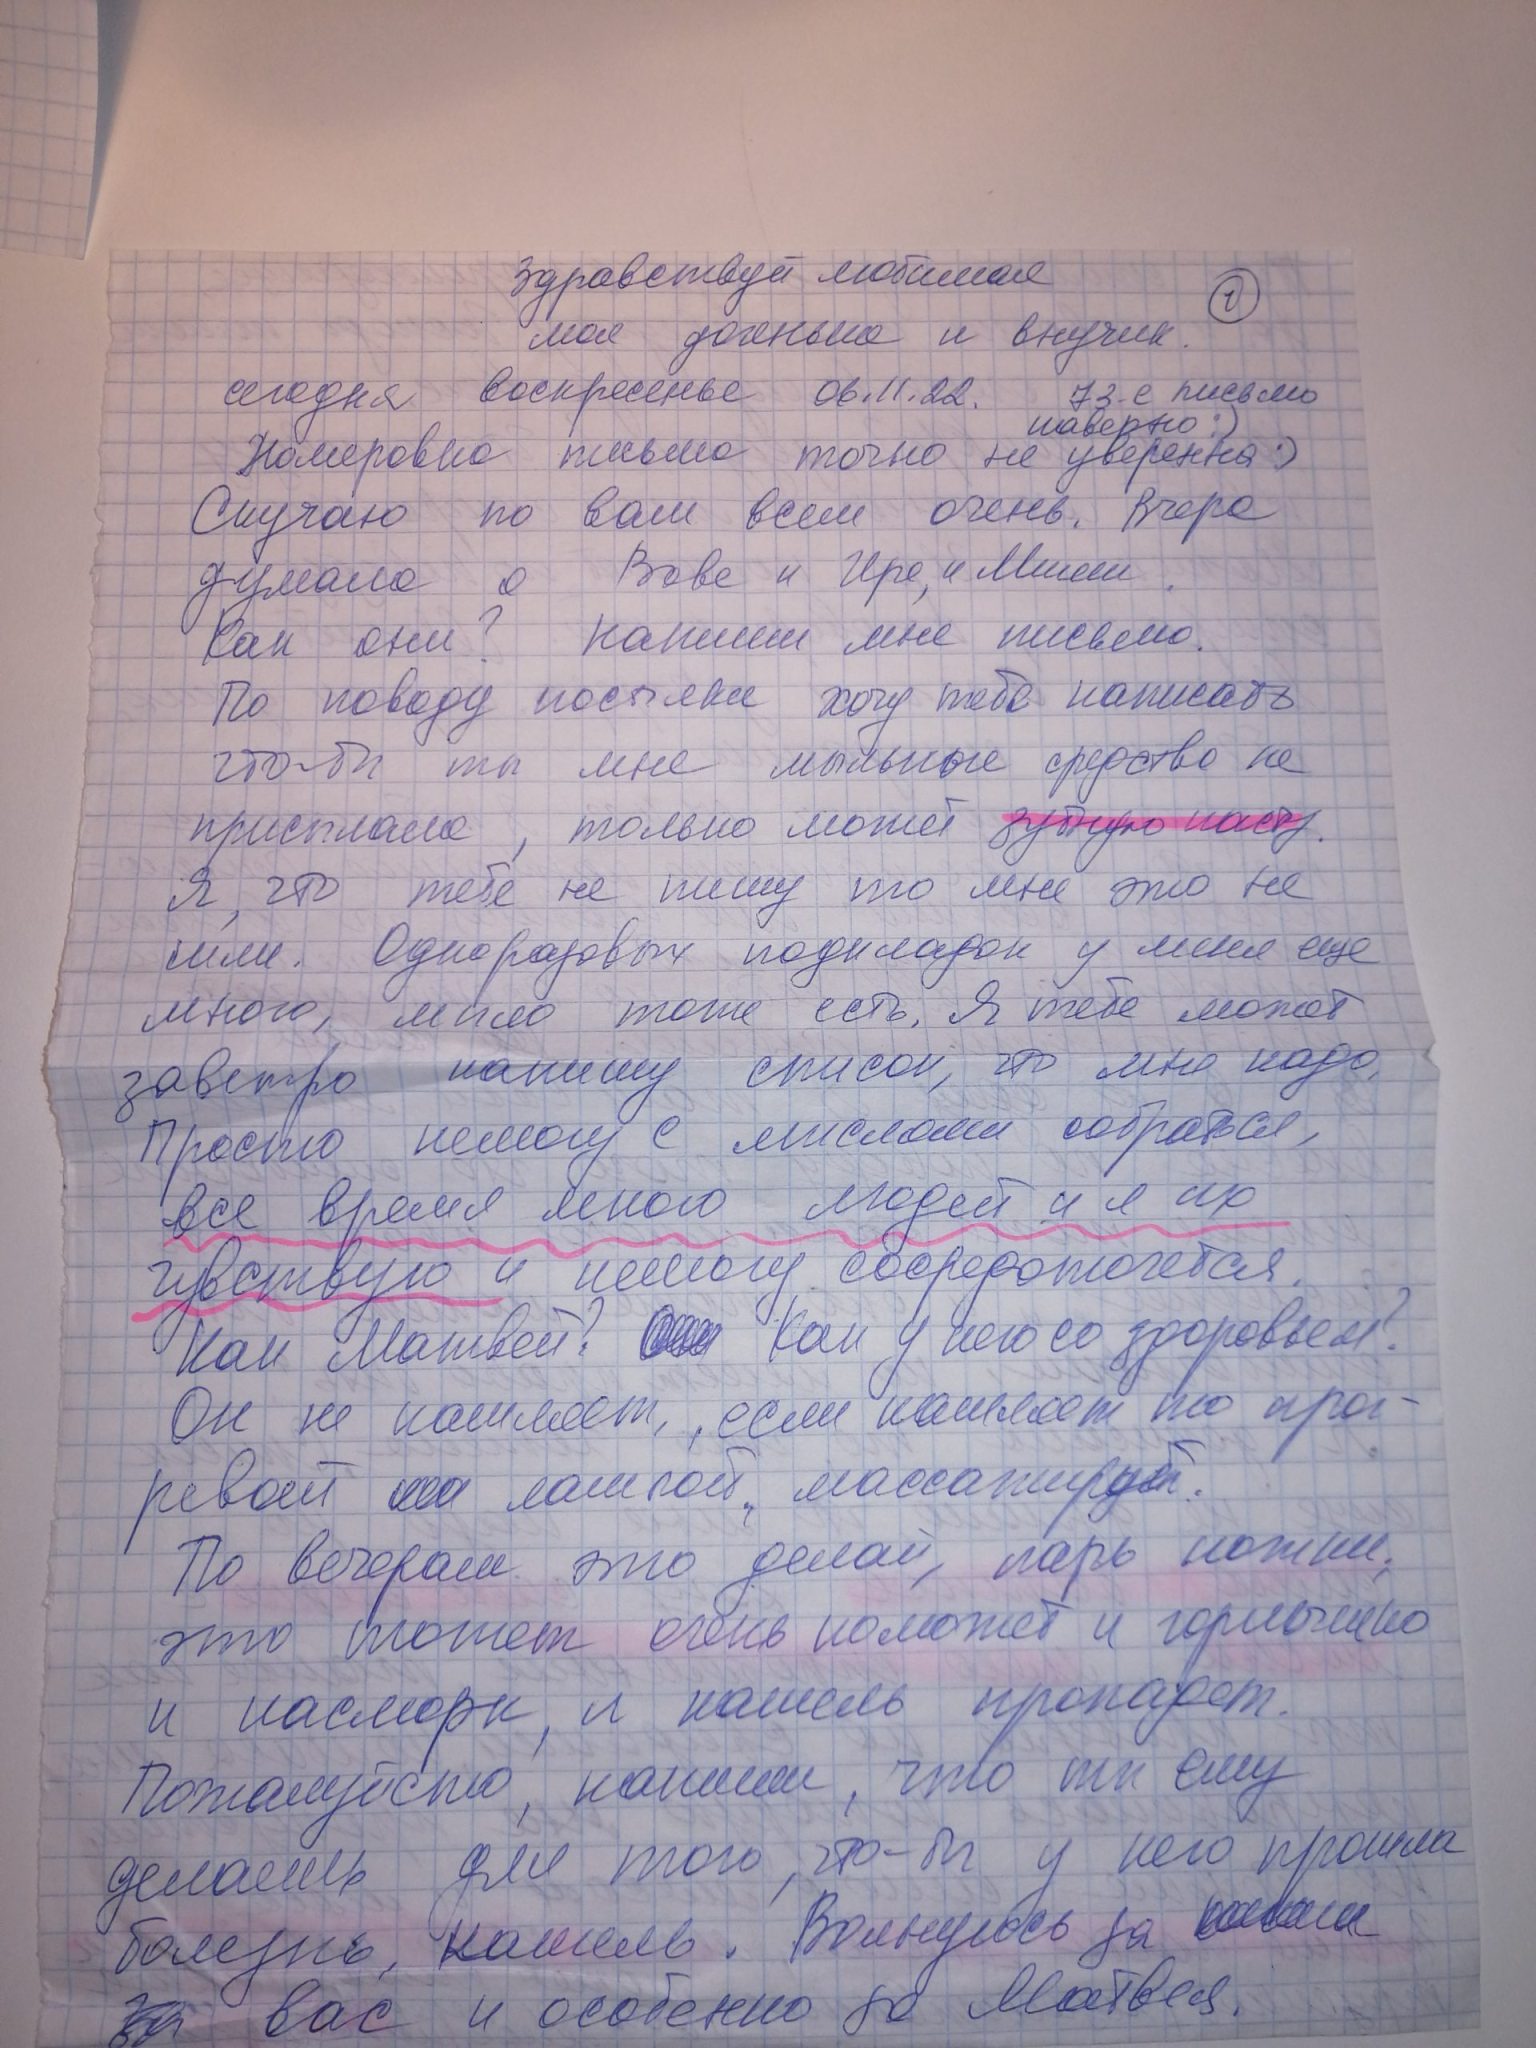 Здравствуй любимая
1
моя доченька и внучик.
сегодня воскресенье 06.11.22. 73-е письмо
наверно :)
Номеровка письма точно не уверенна :)
Скучаю по вам всем очень. Вчера
думала о Вове и Ире, и Миши.
Как они? Напиши мне письмо.
По поводу посылки хочу тебе написать
что-бы ты мне мыльные средства не
присылала, только может зубную пасту.
Я, что тебе не пишу то мне это не
шли. Одноразовых подкладок у меня еще
много, мыло тоже есть. Я тебе может
завстро напишу список, что мне надо.
Просто немогу с мыслями собраться,
все время много людей и я их
чувствую и немогу сосредоточется.
Как Матвей? Как у него со здоровьем?
Он не кашляет, если кашляет то прог-
ревай лампой, массажируй.
По вечерам это делай, парь ножки,
это может очень поможет и горлышко
и насморк, и кашель пропадет.
Пожалуйста, напиши, что ты ему
делаешь для того, что-бы у него прошла
болезнь, кашель. Волнуюсь за
за вас и особенно за Матвея.